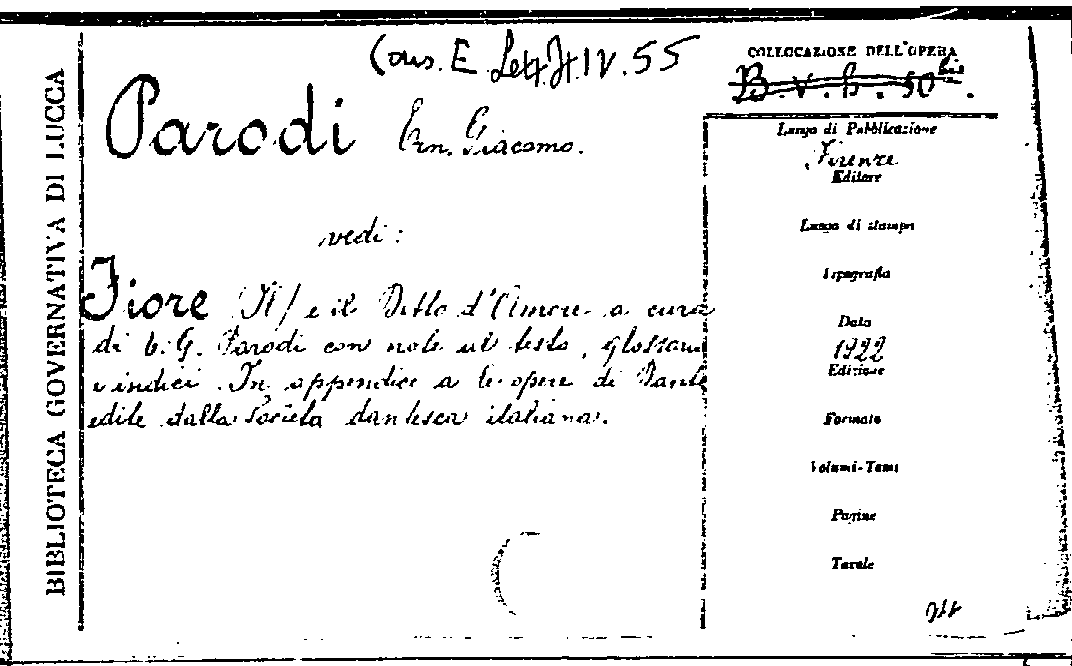 BIBLIOTECA GOVERNATIVA DI LUCCA
Cons. E Lett. It. IV. 55
Parodi Ern. Giacomo.
vedi:
Fiore (Il) e il Detto d'Amore a cura
di E. G. Parodi con note al testo, glossario
e indici. In appendice a le opere di Dante
edite dalla Società dantesca italiana.
COLLOCAZIONE DELL'OPERA
B. v. h. 50 bis.
Luogo di Pubblicazione
Firenze
Editore
Luogo di stampa
Tipografia
Data
1922
Edizione
Formato
Volumi-Tomi
Pagine
Tavole